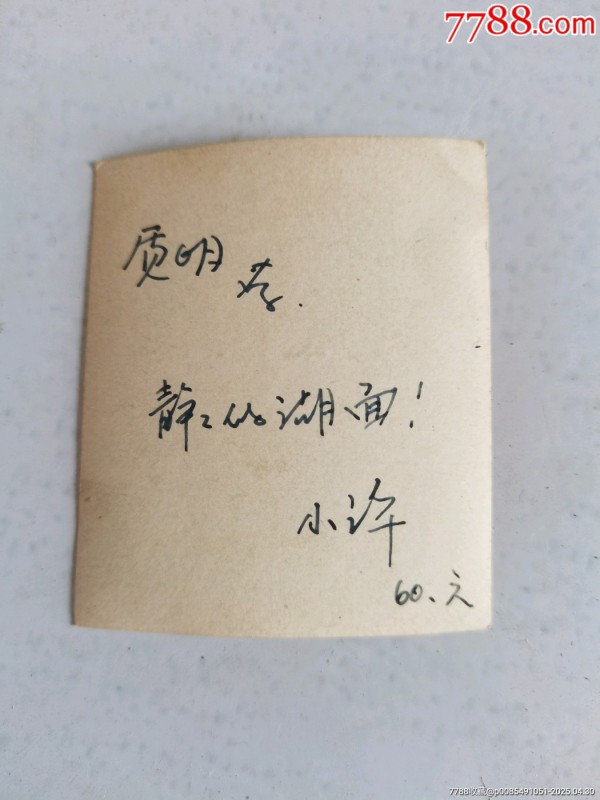 7788.com
质明
存.
静々的湖面!
小许
60、元
7788收藏@p0085491051-2025.04.30